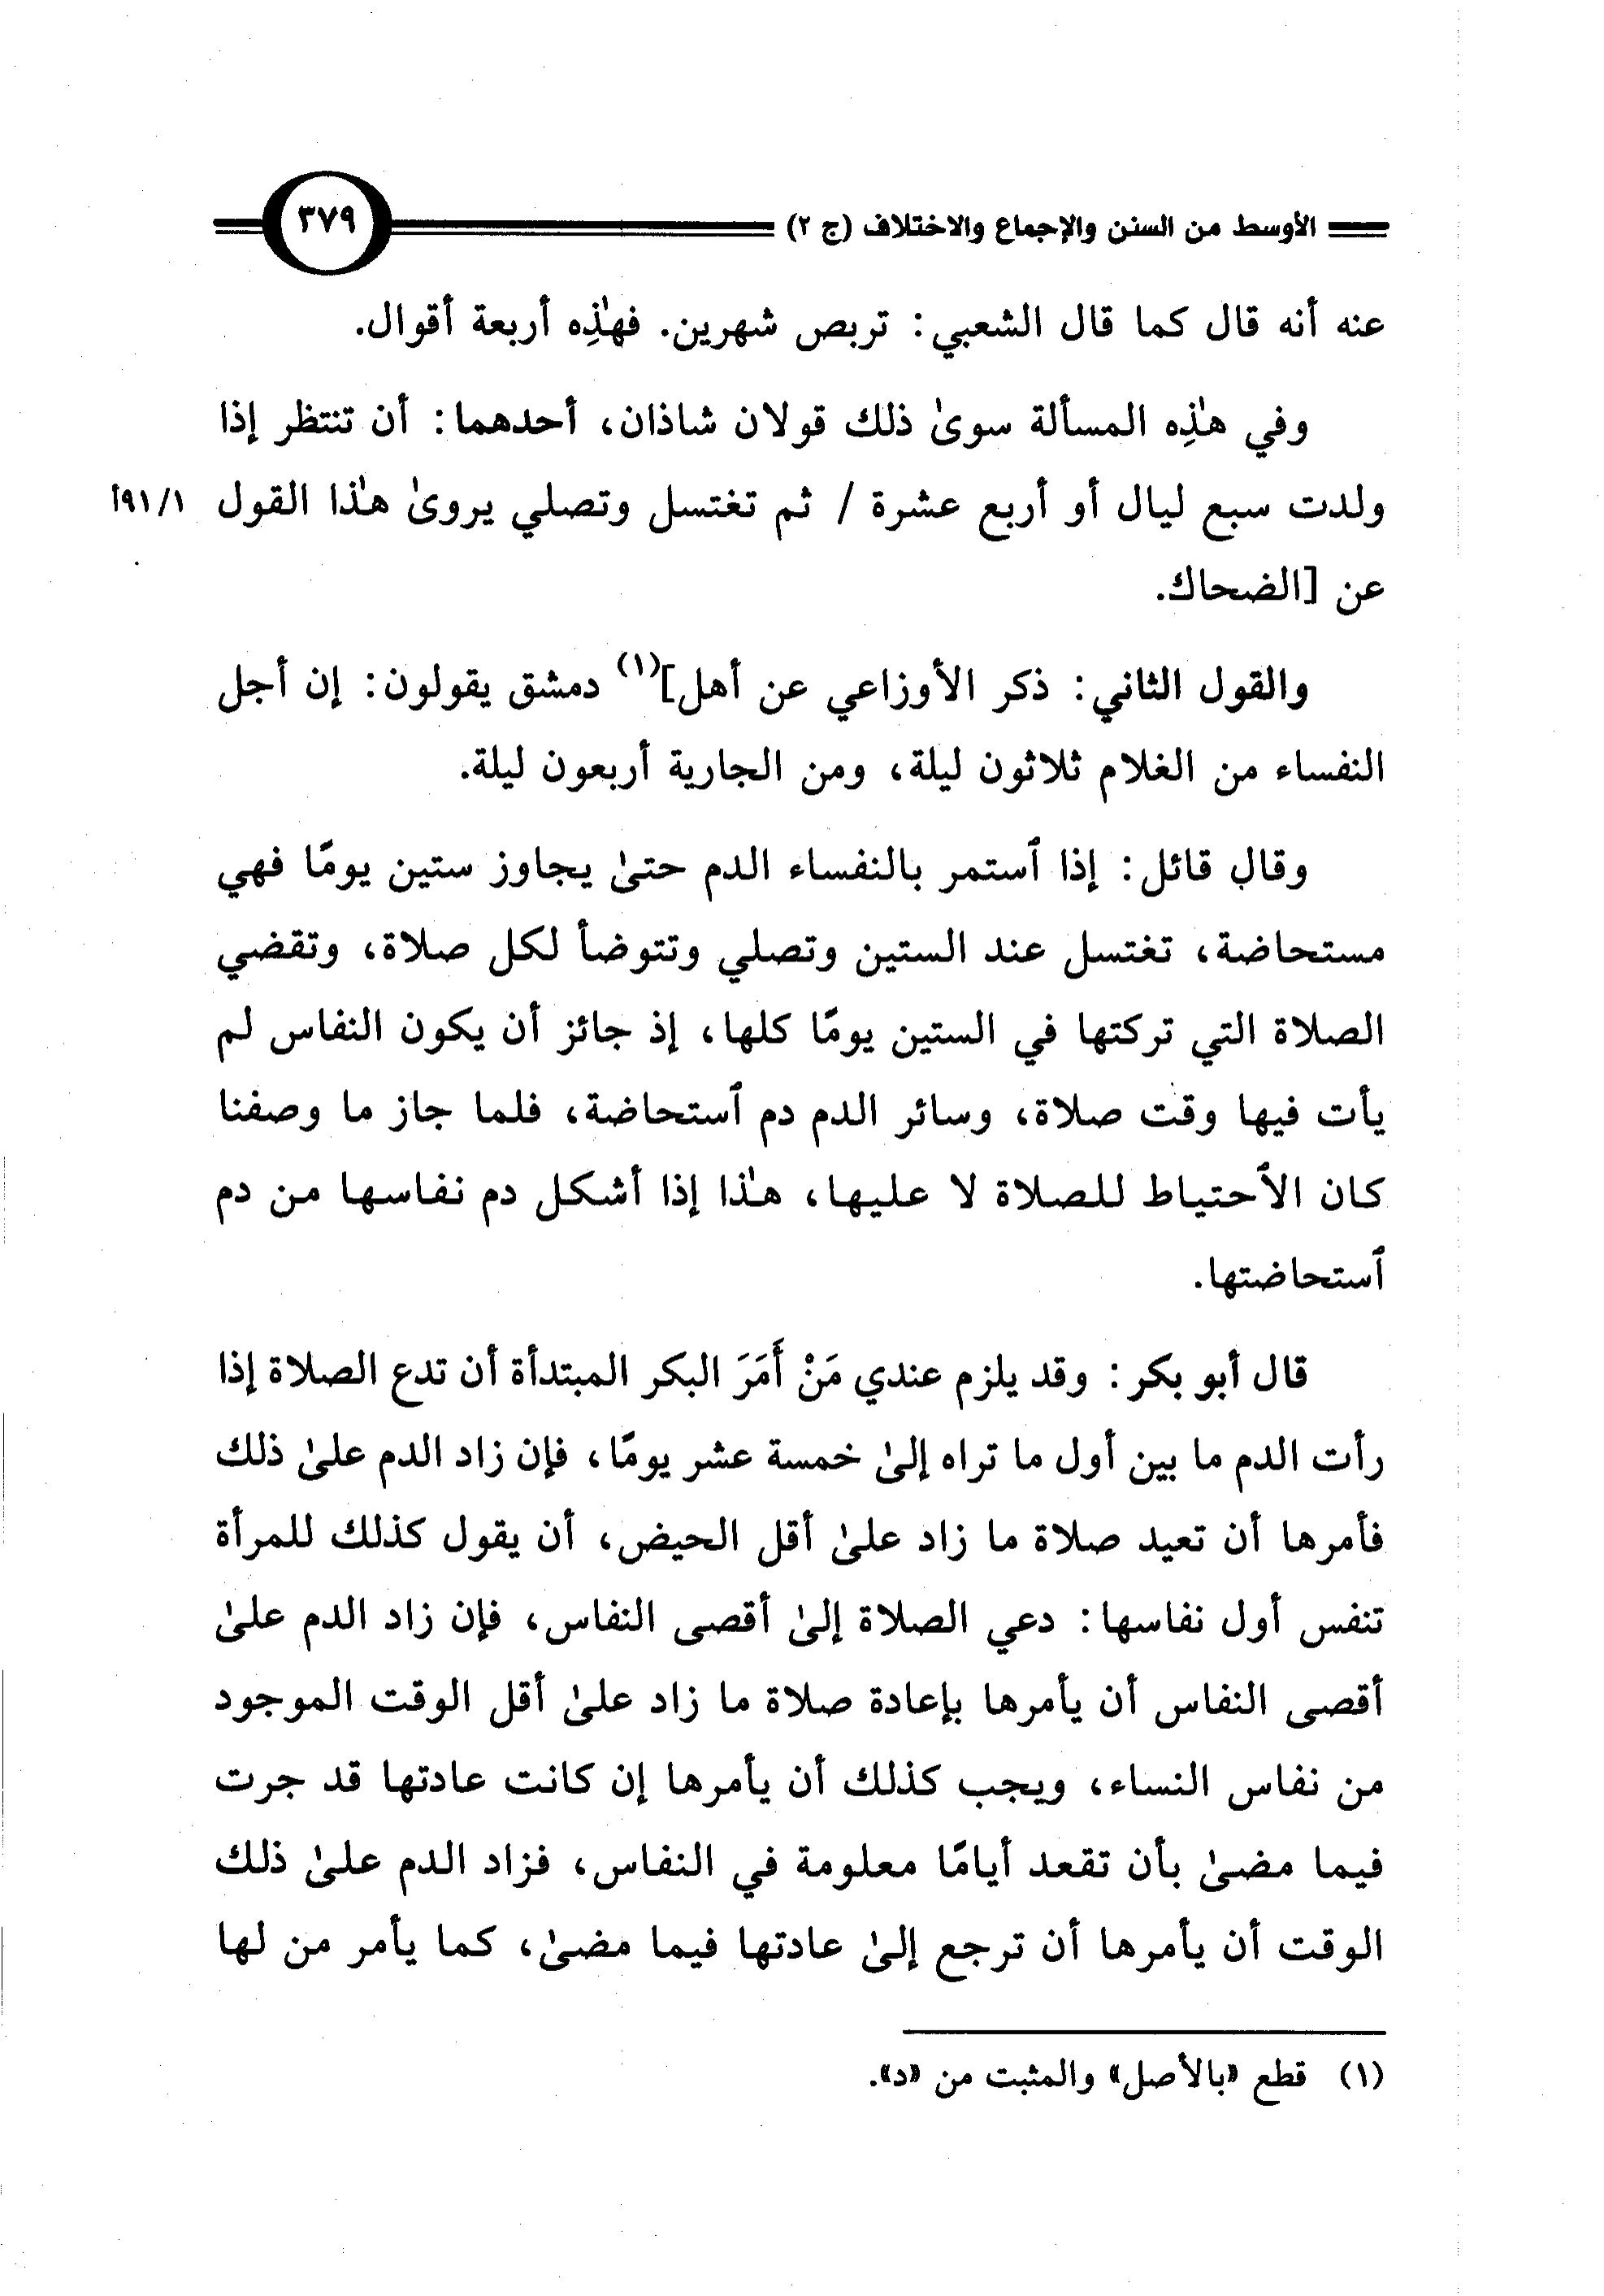 الأوسط من السنن والإجماع والاختلاف (ج ٢) ٣٧٩
عنه أنه قال كما قال الشعبي: تربص شهرين. فهٰذِه أربعة أقوال.
وفي هٰذِه المسألة سوىٰ ذلك قولان شاذان، أحدهما: أن تنتظر إذا
ولدت سبع ليال أو أربع عشرة / ثم تغتسل وتصلي يروىٰ هٰذا القول ١/٩١أ
عن [الضحاك.
والقول الثاني: ذكر الأوزاعي عن أهل](١) دمشق يقولون: إن أجل
النفساء من الغلام ثلاثون ليلة، ومن الجارية أربعون ليلة.
وقال قائل: إذا ٱستمر بالنفساء الدم حتىٰ يجاوز ستين يومًا فهي
مستحاضة، تغتسل عند الستين وتصلي وتتوضأ لكل صلاة، وتقضي
الصلاة التي تركتها في الستين يومًا كلها، إذ جائز أن يكون النفاس لم
يأت فيها وقت صلاة، وسائر الدم دم ٱستحاضة، فلما جاز ما وصفنا
كان الٱحتياط للصلاة لا عليها، هٰذا إذا أشكل دم نفاسها من دم
ٱستحاضتها.
قال أبو بكر: وقد يلزم عندي مَنْ أَمَرَ البكر المبتدأة أن تدع الصلاة إذا
رأت الدم ما بين أول ما تراه إلىٰ خمسة عشر يومًا، فإن زاد الدم علىٰ ذلك
فأمرها أن تعيد صلاة ما زاد علىٰ أقل الحيض، أن يقول كذلك للمرأة
تنفس أول نفاسها: دعي الصلاة إلىٰ أقصى النفاس، فإن زاد الدم علىٰ
أقصى النفاس أن يأمرها بإعادة صلاة ما زاد علىٰ أقل الوقت الموجود
من نفاس النساء، ويجب كذلك أن يأمرها إن كانت عادتها قد جرت
فيما مضىٰ بأن تقعد أيامًا معلومة في النفاس، فزاد الدم علىٰ ذلك
الوقت أن يأمرها أن ترجع إلىٰ عادتها فيما مضىٰ، كما يأمر من لها
(١) قطع «بالأصل» والمثبت من «د».